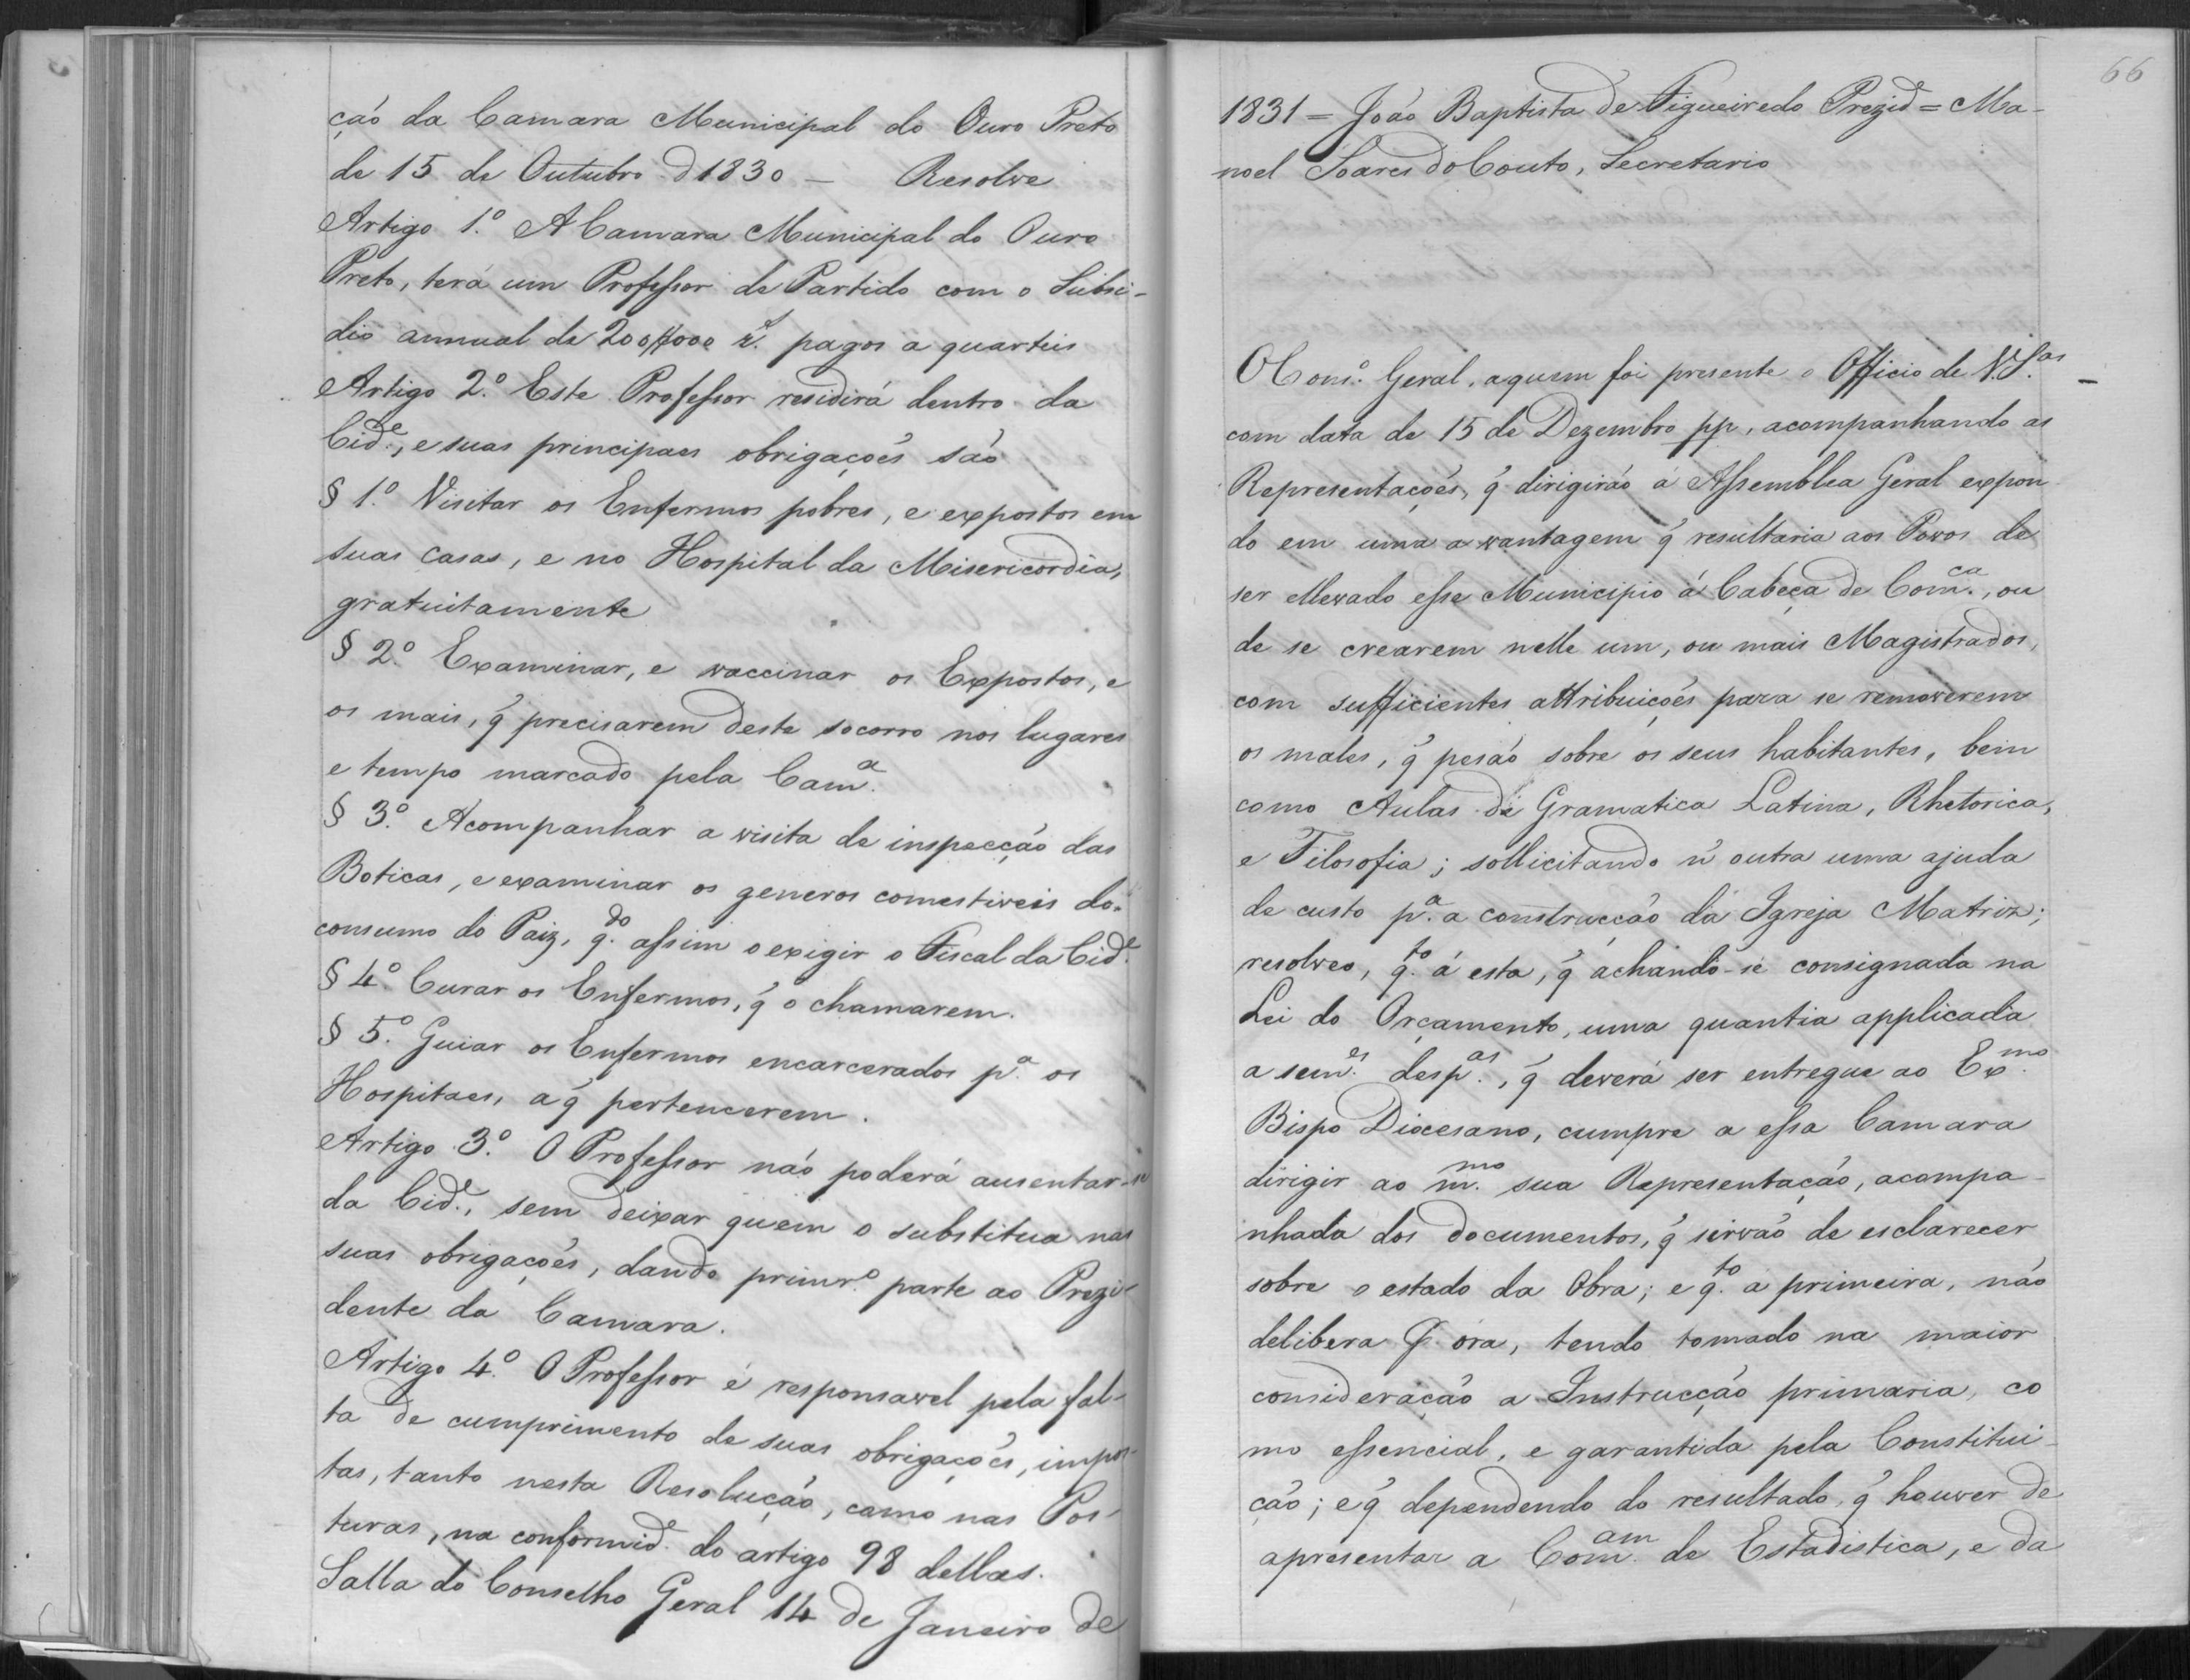 ção da Camara Municipal do Ouro Preto
de 15 de Outubro d 1830 — Resolve
Artigo 1.º A Camara Municipal do Ouro
Preto, terá um Professor de Partido com o Subsi-
dio annual de 200$000 rs. pagos a quarteis
Artigo 2.º Este Professor residirá dentro da
Cid.e, e suas principaes obrigações são
§ 1.º Visitar os Enfermos pobres, e expostos em
suas casas, e no Hospital da Misericordia,
gratuitamente
§ 2.º Examinar, e vaccinar os Expostos, e
os mais, q̃ precisarem deste socorro nos lugares
e tempo marcado pela Cam.a
§ 3.º Acompanhar a visita de inspecção das
Boticas, e examinar os generos comestiveis do
consumo do Paiz, q.do assim o exigir o Fiscal da Cid.e
§ 4.º Curar os Enfermos, q̃ o chamarem.
§ 5.º Guiar os Enfermos encarcerados p.a os
Hospitaes, a q̃ pertencerem.
Artigo 3.º O Professor não poderá ausentar-se
da Cid.e, sem deixar quem o substitua nas
suas obrigações, dando primr.o parte ao Prezi-
dente da Camara.
Artigo 4.º O Professor é responsavel pela fal-
ta de cumprimento de suas obrigações, impos-
tas, tanto nesta Resolução, como nas Pos-
turas, na conformid.e do artigo 98 dellas.
Salla do Conselho Geral 14 de Janeiro de
66
1831 = João Baptista de Figueiredo Prezid.e = Ma-
noel Soares do Couto, Secretario
O Cons.o Geral, a quem foi presente o Officio de V.S.as
com data de 15 de Dezembro pp, acompanhando as
Representações, q̃ dirigirão á Assemblea Geral expon
do em uma a vantagem q̃ resultaria aos Povos de
ser ellevado esse Municipio á Cabeça de Com.ca, ou
de se crearem nelle um, ou mais Magistrados,
com sufficientes attribuições para se removerem
os males, q̃ pesão sobre os seus habitantes, bem
como Aulas de Gramatica Latina, Rhetorica,
e Filosofia; sollicitando n'outra uma ajuda
de custo p.a a construcção da Igreja Matriz;
resolveo, q.to á esta, q̃ achando-se consignada na
Lei do Orçamento, uma quantia applicada
a sem.es desp.as, q̃ deverá ser entregue ao Ex.mo
Bispo Diocesano, cumpre a essa Camara
dirigir ao m.mo sua Representação, acompa-
nhada dos documentos, q̃ sirvão de esclarecer
sobre o estado da Obra; e q.to a primeira, não
delibera p.r ora, tendo tomado na maior
consideração a Instrucção primaria, co
mo essencial, e garantida pela Constitui-
ção; e q̃ dependendo do resultado, q̃ houver de
apresentar a Com.am de Estadistica, e da